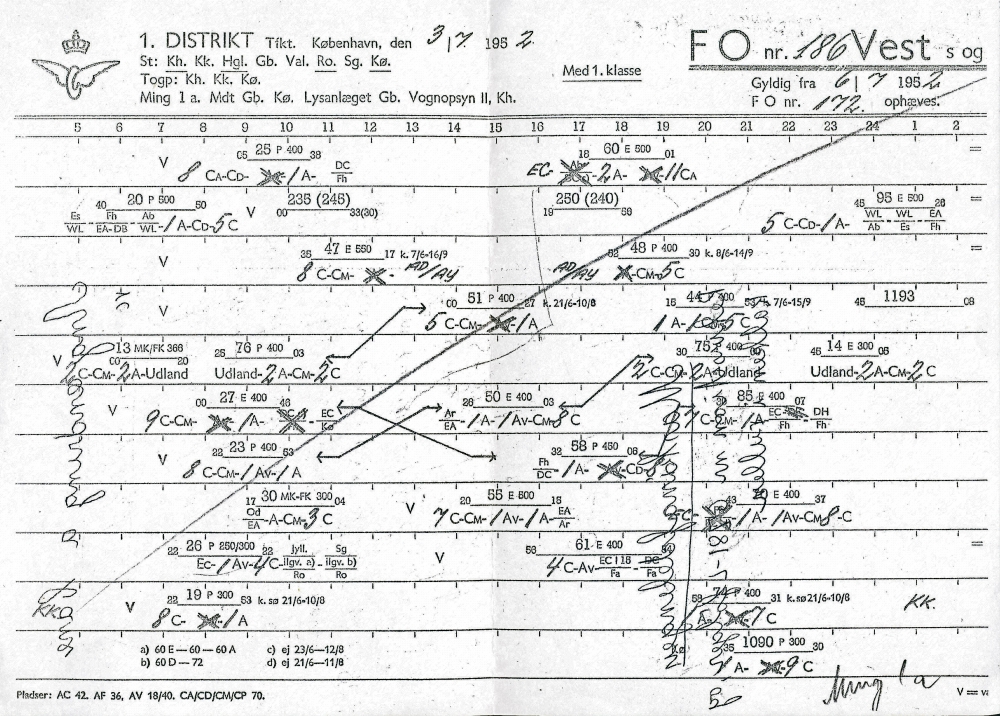 1. DISTRIKT Tfkt. København, den 3/7 1952
FO nr. 186 Vest s og
St: Kh. Kk. Hgl. Gb. Val. Ro. Sg. Kø.
Togp: Kh. Kk. Kø.
Med 1. klasse
Gyldig fra 6/7 1952
Ming 1 a. Mdt Gb. Kø. Lysanlæget Gb. Vognopsyn II, Kh.
FO nr. 172. ophæves.
5 6 7 8 9 10 11 12 13 14 15 16 17 18 19 20 21 22 23 24 1 2
05 25 P 400 38
18 60 E 500 01 =
V 8 CA-CD- 1 A- DC/Fh
EC- 2 A- 11 CA
40 20 P 500 50 V 00 235 (245) 33(30)
19 250 (240) 56
45 95 E 500 26 =
Es/WL - Fh/EA-DB - Ab/WL - 1 A-CD-5 C
5 C-CD-1 A- WL/Ab - WL/Es - EA/Fh
V 35 47 E 550 17 k. 7/6-16/9
52 48 P 400 30 k. 8/6-14/9
8 C-CM- AD/AY
AD/AY -CM-5 C
V 00 51 P 400 27 k. 21/6-10/8
16 44 P 400 53 k. 7/6-15/9
45 1193 08
5 C-CM- 1 A
1 A- 5 C
V 00 13 MK/FK 366 20
25 76 P 400 03
30 75 P 400
45 14 E 300 05
2 C-CM-2 A-Udland
Udland-2 A-CM-2 C
2 C-CM-2 A-Udland
Udland-2 A-CM-2 C
V 00 27 E 400 46
26 50 E 400 03
85 E 400 07
9 C-CM- 1 A- EC/Kø
Ar/EA - 1 A-1 AV-CM-8 C
7 C-CM-1 A- EC/Fh - DH/Fh
V 22 23 P 400 53
32 58 P 450 06
8 C-CM-1 AV-1 A
Fh/DC -1 A- AV-CD-8 C
17 30 MK-FK 300 04 V
20 55 E 500 18
43 70 E 400 37
Od/EA -A-CM-3 C
7 C-CM-1 AV-1 A- EA/Ar
1 A-1 AV-CM 8-C
22 26 P 250/300 22 Jyll. ilgv. a)/Ro - Sg ilgv. b)/Ro V
56 61 E 400 54 =
EC-1 AV-4 C-
4 C-AV- EC 118/Fa - DC/Fa
KK. V 22 19 P 300 53 k. sø 21/6-10/8
58 74 P 400 31 k. sø 21/6-10/8 KK.
8 C- 1 A
A- 7 C
35 1090 P 300 30
1 A- 9 C
a) 60 E — 60 — 60 A c) ej 23/6—12/8
b) 60 D — 72 d) ej 21/6—11/8
Ming 1a
Pladser: AC 42. AF 36, AV 18/40. CA/CD/CM/CP 70.